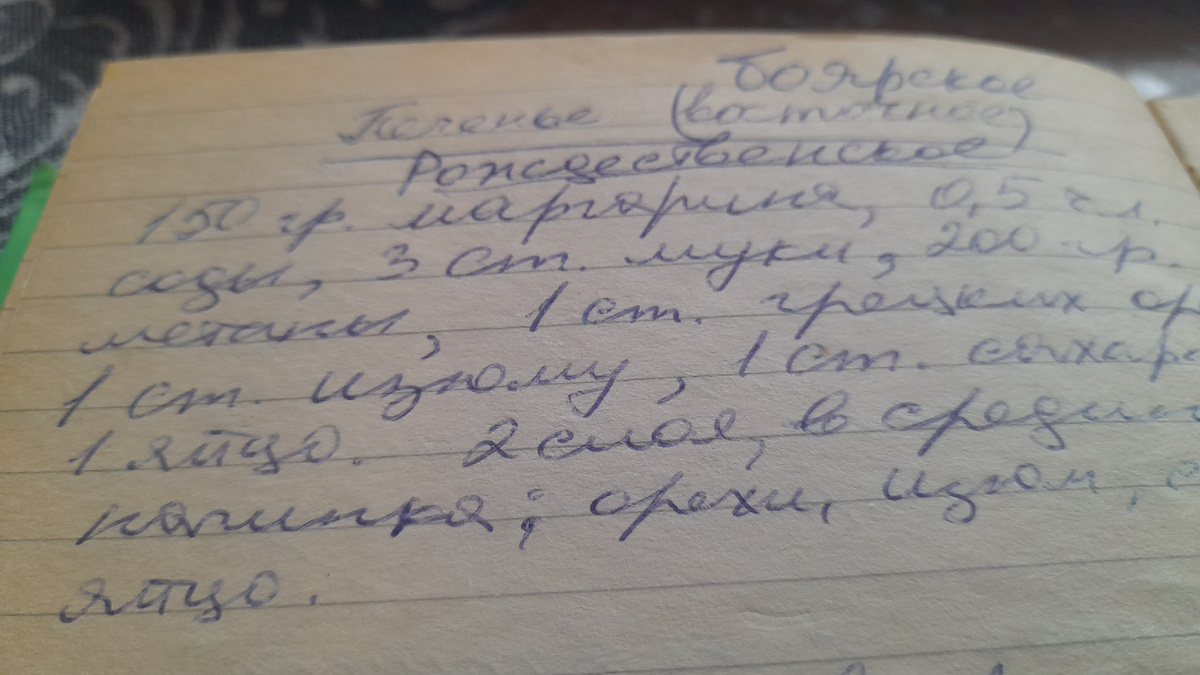 Боярское
Печенье (восточное)
Рождественское
150 гр. маргарина, 0,5 чл.
соды, 3 ст. муки, 200 гр.
метаны, 1 ст. грецких ор
1 ст. изюму, 1 ст. сахара
1 яйцо. 2 слоя, в средин
начинка; орехи, изюм,
яйцо.